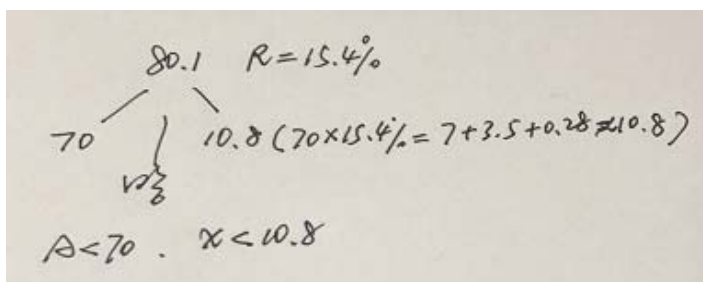 80.1 R=15.4%
70 10.8 (70×15.4%=7+3.5+0.28≈10.8)
A<70. x<10.8